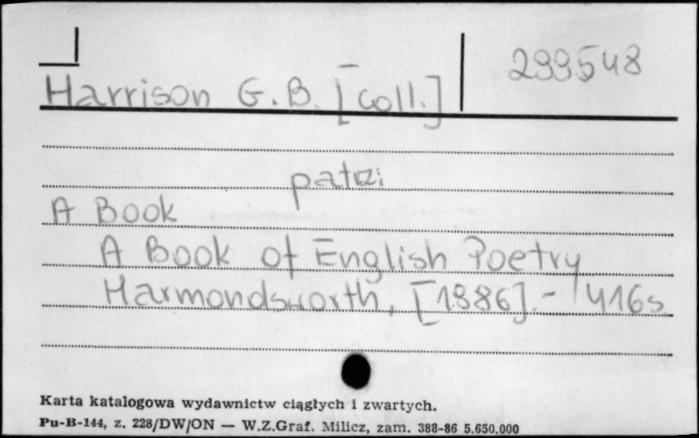 299548
Harrison G. B. [coll.]
patrz:
A Book
A Book of English Poetry
Harmondsworth, [1986]. - 416s.
Karta katalogowa wydawnictw ciągłych i zwartych.
Pu-B-144, z. 228/DW/ON — W.Z.Graf. Milicz, zam. 388-86 5.650.000